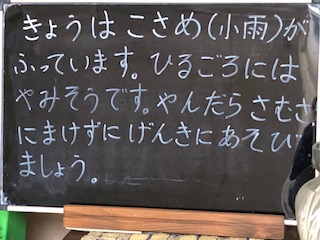 きょうは こさめ(小雨)が
ふっています。ひるごろには
やみそうです。やんだら さむさ
にまけずに げんきに あそび
ましょう。